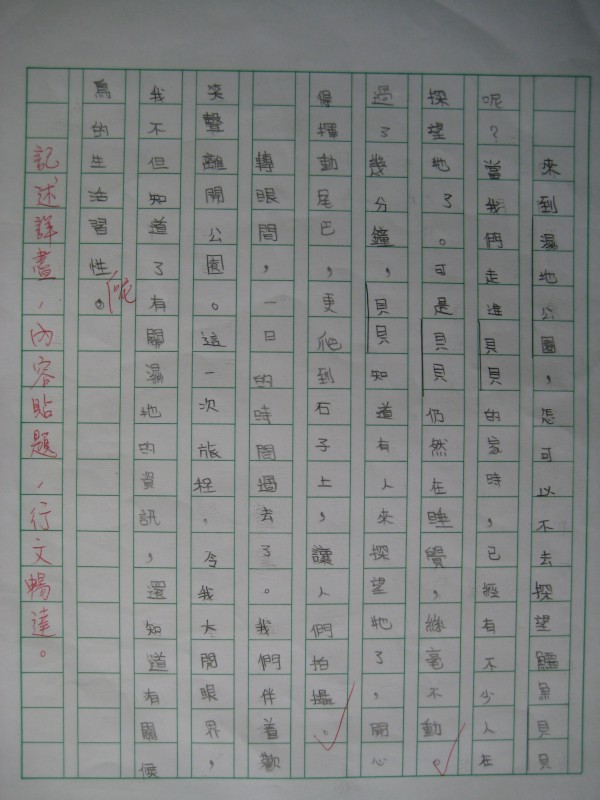 來到濕地公園，怎可以不去探望鱷魚貝貝
呢？當我們走進貝貝的家時，已經有不少人在
探望牠了。可是貝貝仍然在睡覺，絲毫不動。
過了幾分鐘，貝貝知道有人來探望牠了，開心
得擺動尾巴，更爬到石子上，讓人們拍攝。
轉眼間，一日的時間過去了。我們伴着歡
笑聲離開公園。這一次旅程，令我大開眼界，
我不但知道了有關濕地的資訊，還知道有關候
鳥的生活習性。
記述詳盡，內容貼題，行文暢達。